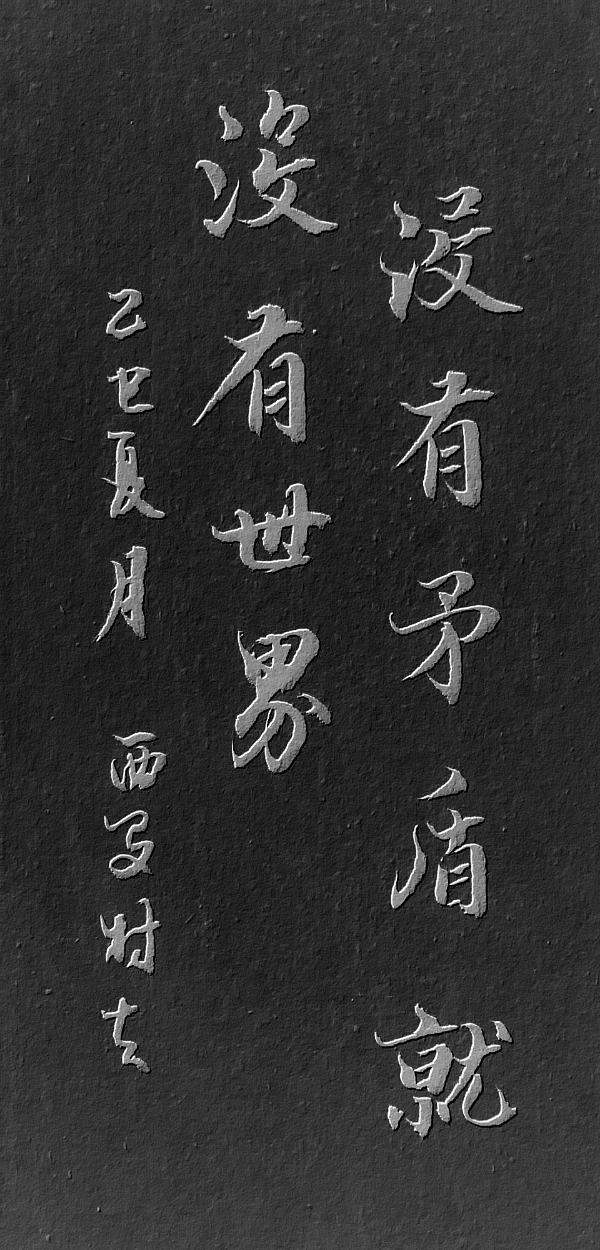 没有矛盾就
没有世界
乙巳夏月 西村